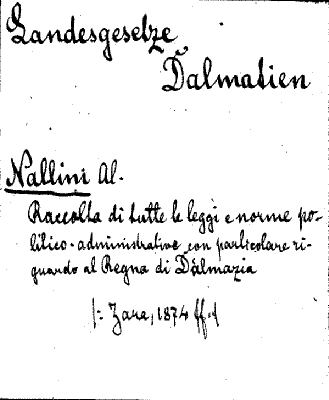 Landesgesetze
Dalmatien
Nallini Al.
Raccolta di tutte le leggi e norme po-
litico-administrative con particolare ri-
guardo al Regna di Dalmazia
/: Zara, 1874 ff :/